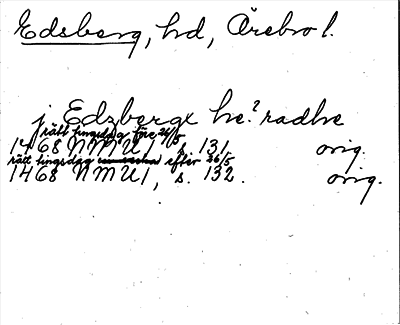 Edsberg, hd, Örebro l.
j Edzbergx he? radhe
rätt tingsdag före 26/5
1468 NMU 1 s. 131. orig.
rätt tingsdag efter 26/5
1468 NMU 1, s. 132. orig.